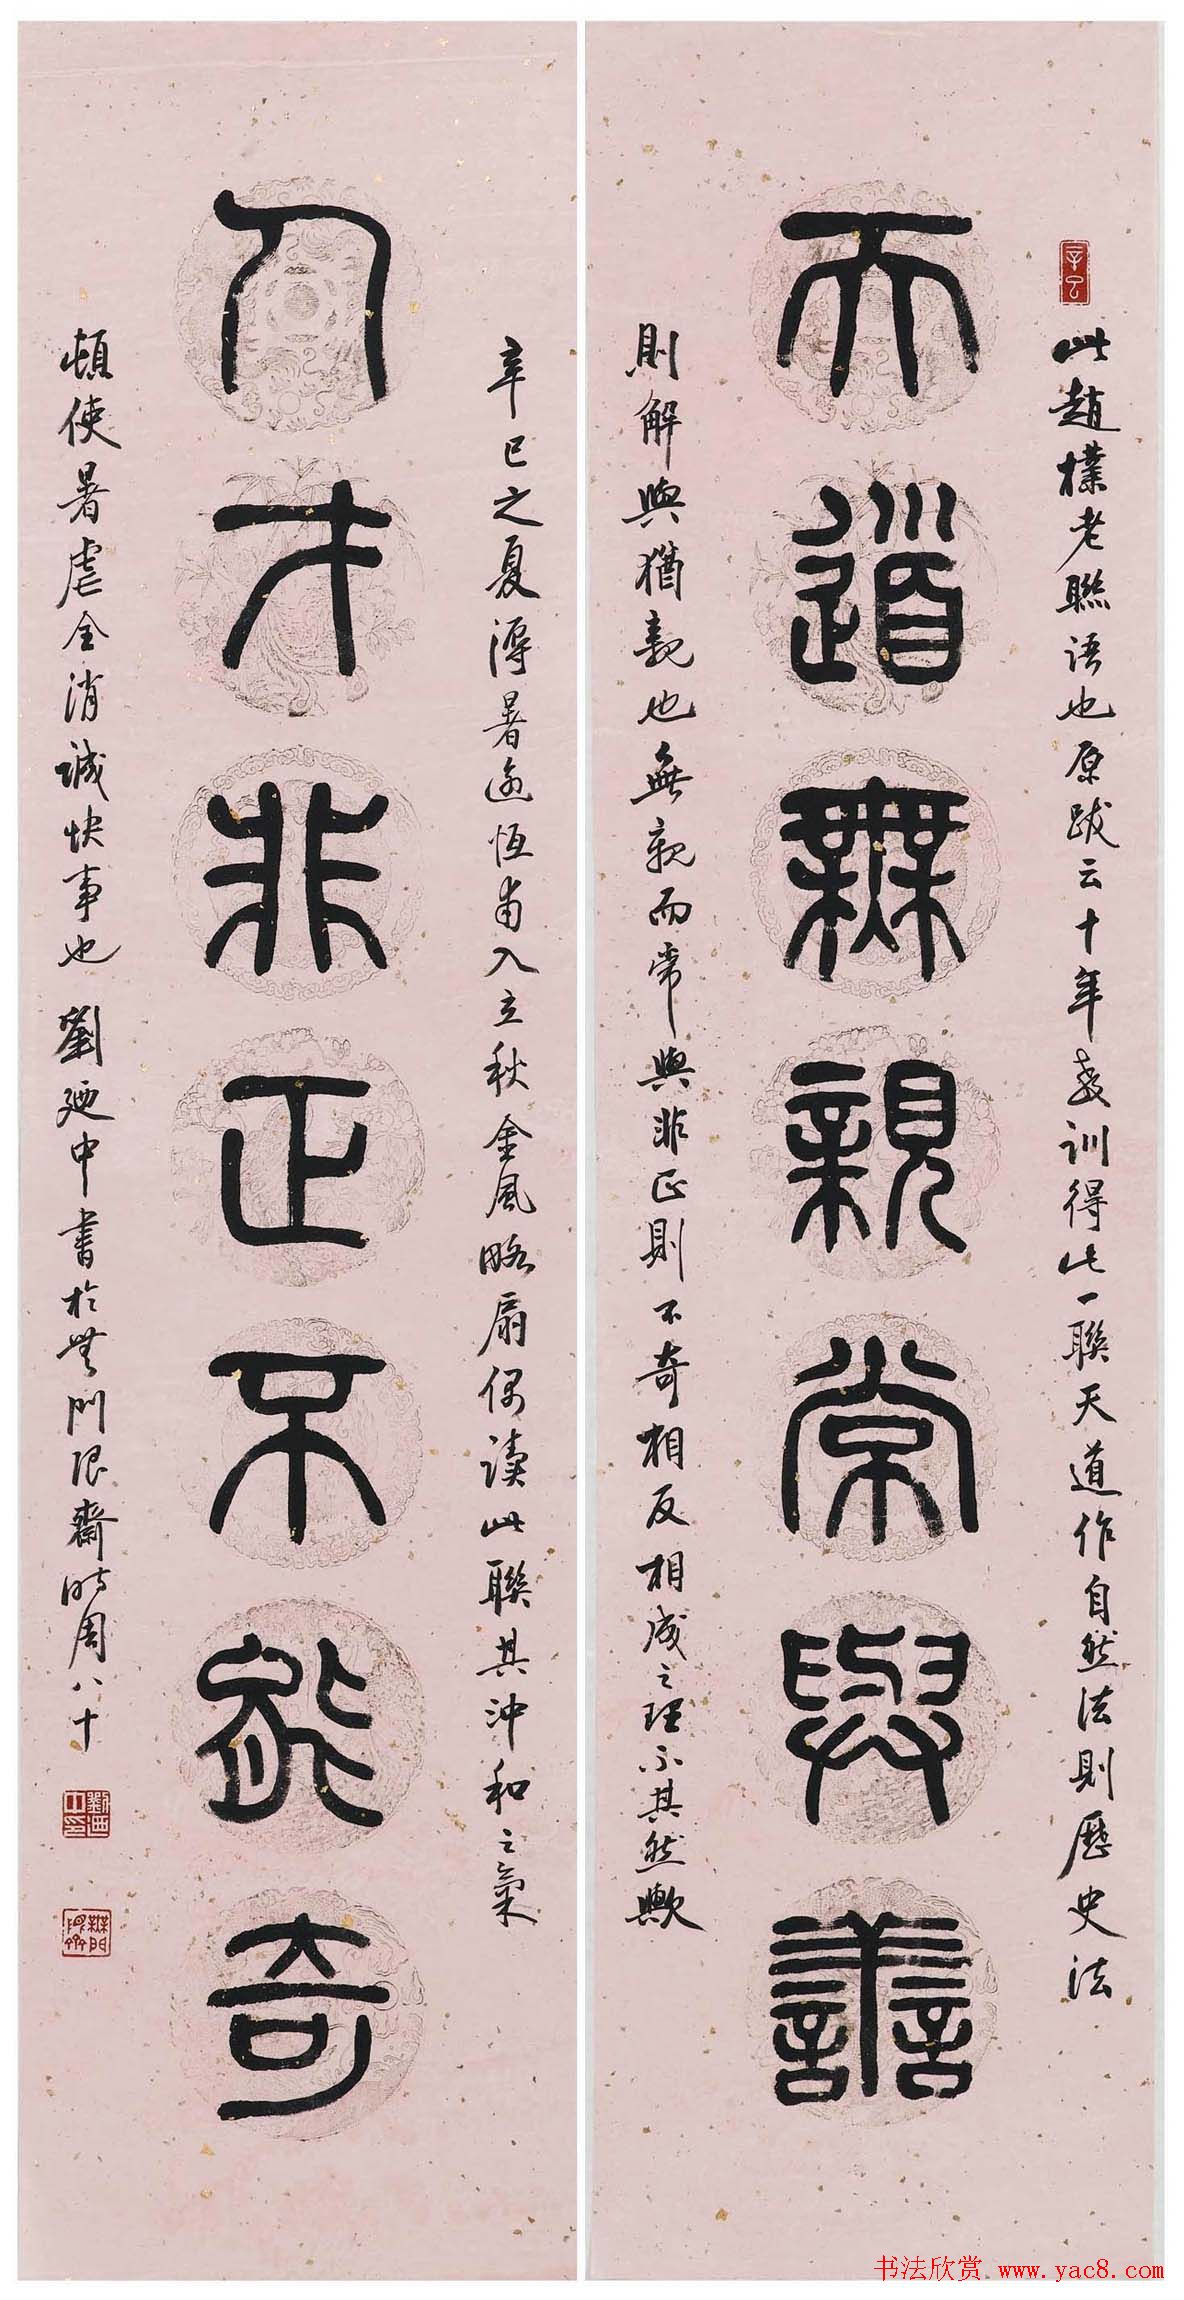 辛巳
此趙樸老聯語也原跋云十年教訓得此一聯天道作自然法則歷史法
天道無親常與善
則解與猶親也無親而常與非正則不奇相反相成之理不其然歟
辛巳之夏溽暑逾恆甫入立秋金風略扇偶讀此聯其沖和之氣
人才非正不能奇
頓使暑虐全消誠快事也 劉廼中書於無門限齋時周八十
劉廼中印
無門限齋
书法欣赏 www.yac8.com